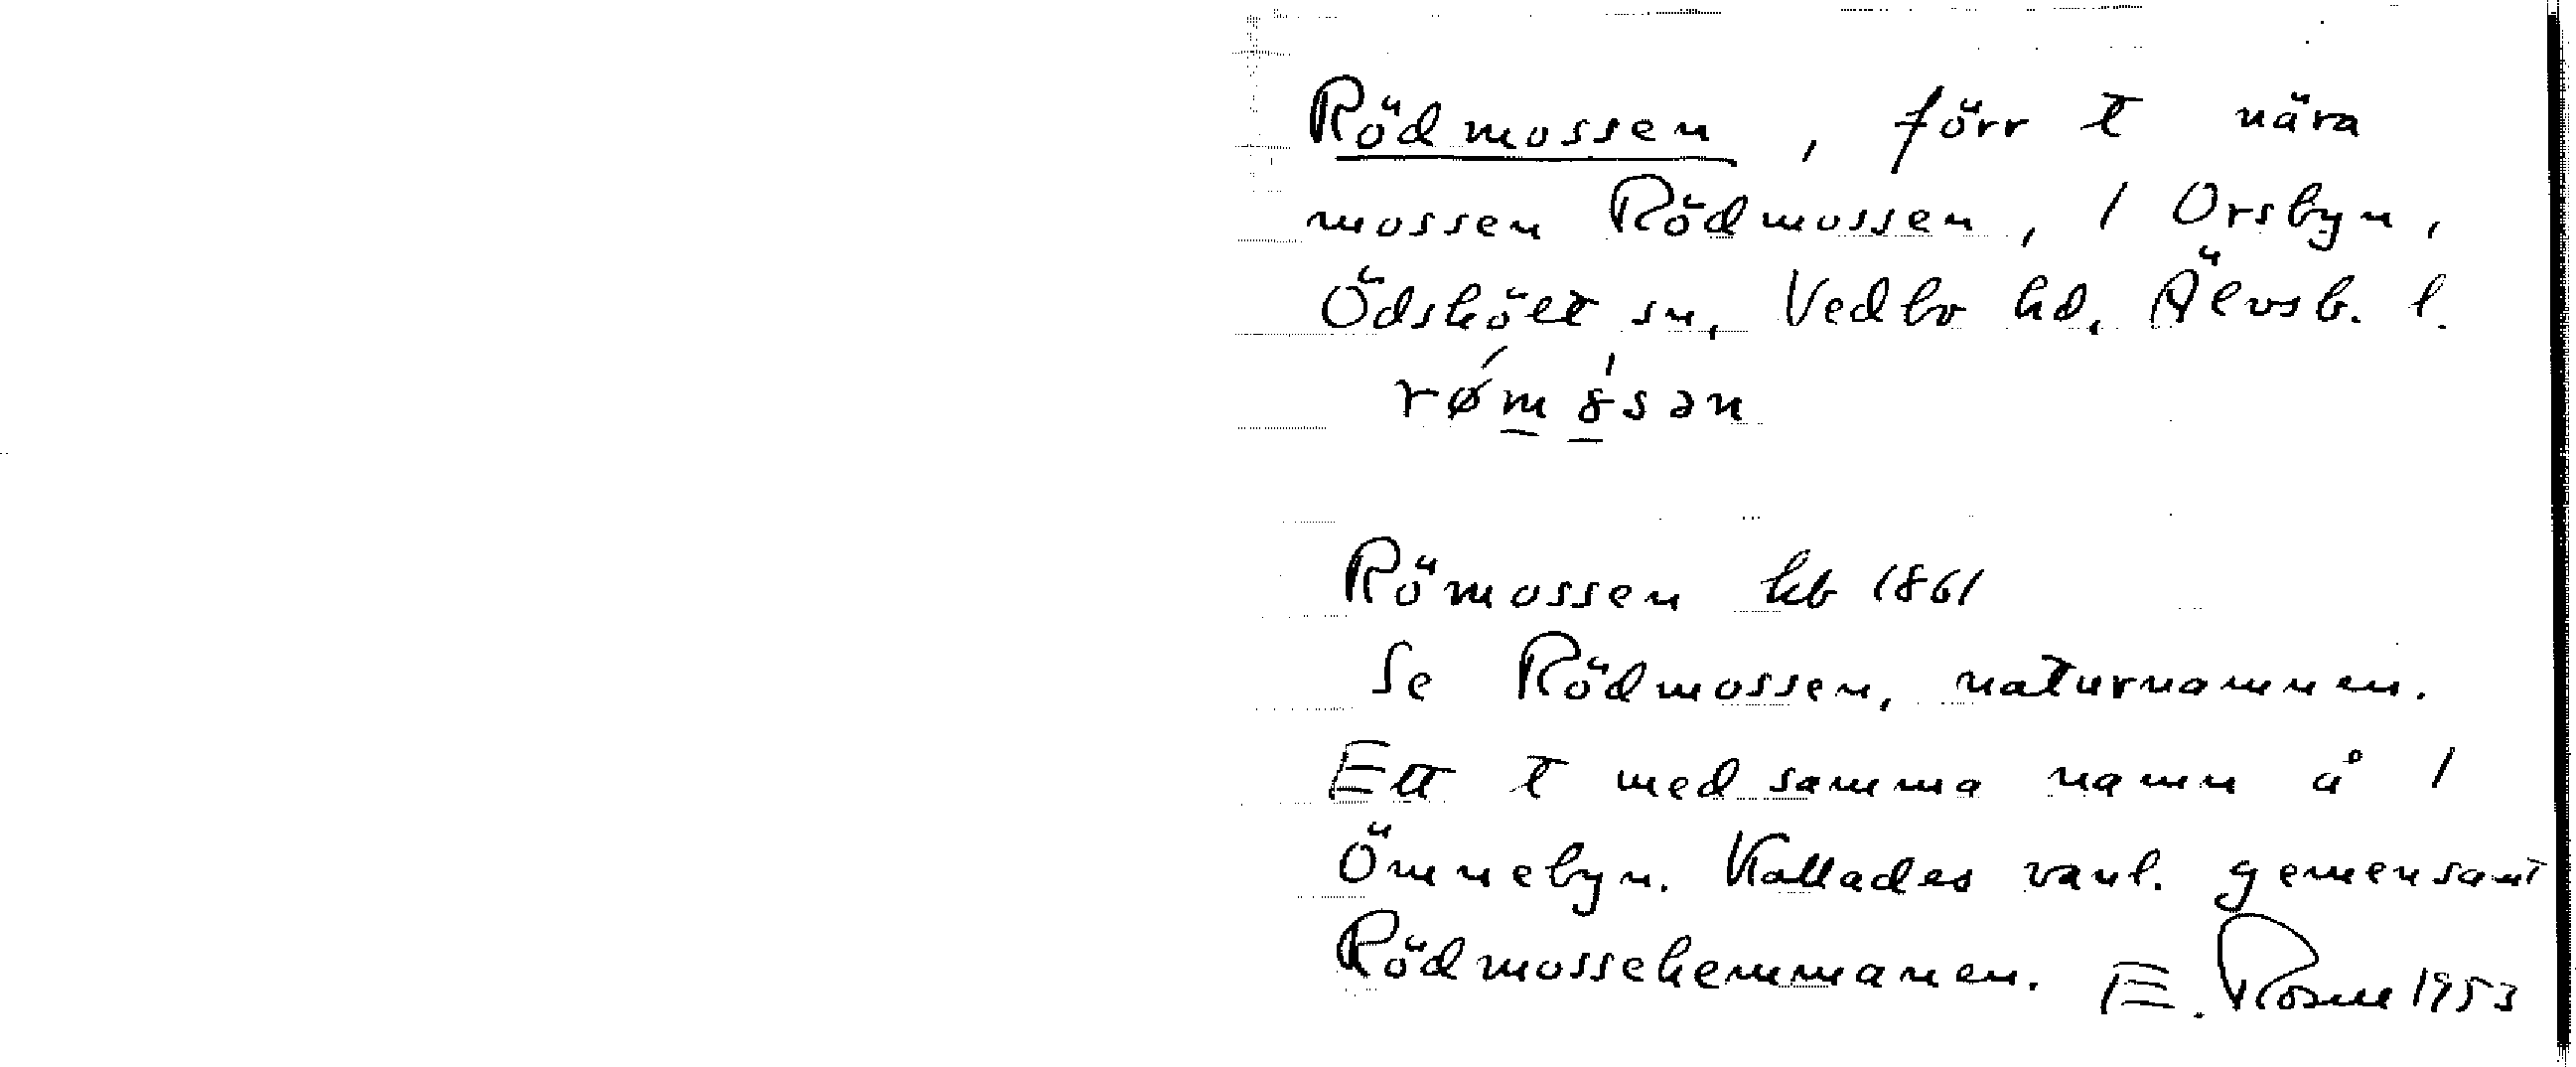 Rödmossen, förr t nära
mossen Rödmossen, 1 Orsbyn,
Ödskölt sn, Vedbo hd, Älvsb. l.
Römossen kb 1861
Se Rödmossen, naturnamnen.
Ett t med samma namn å 1
Ömnebyn. Kallades vanl. gemensamt
Rödmossehemmanen. E. 1953